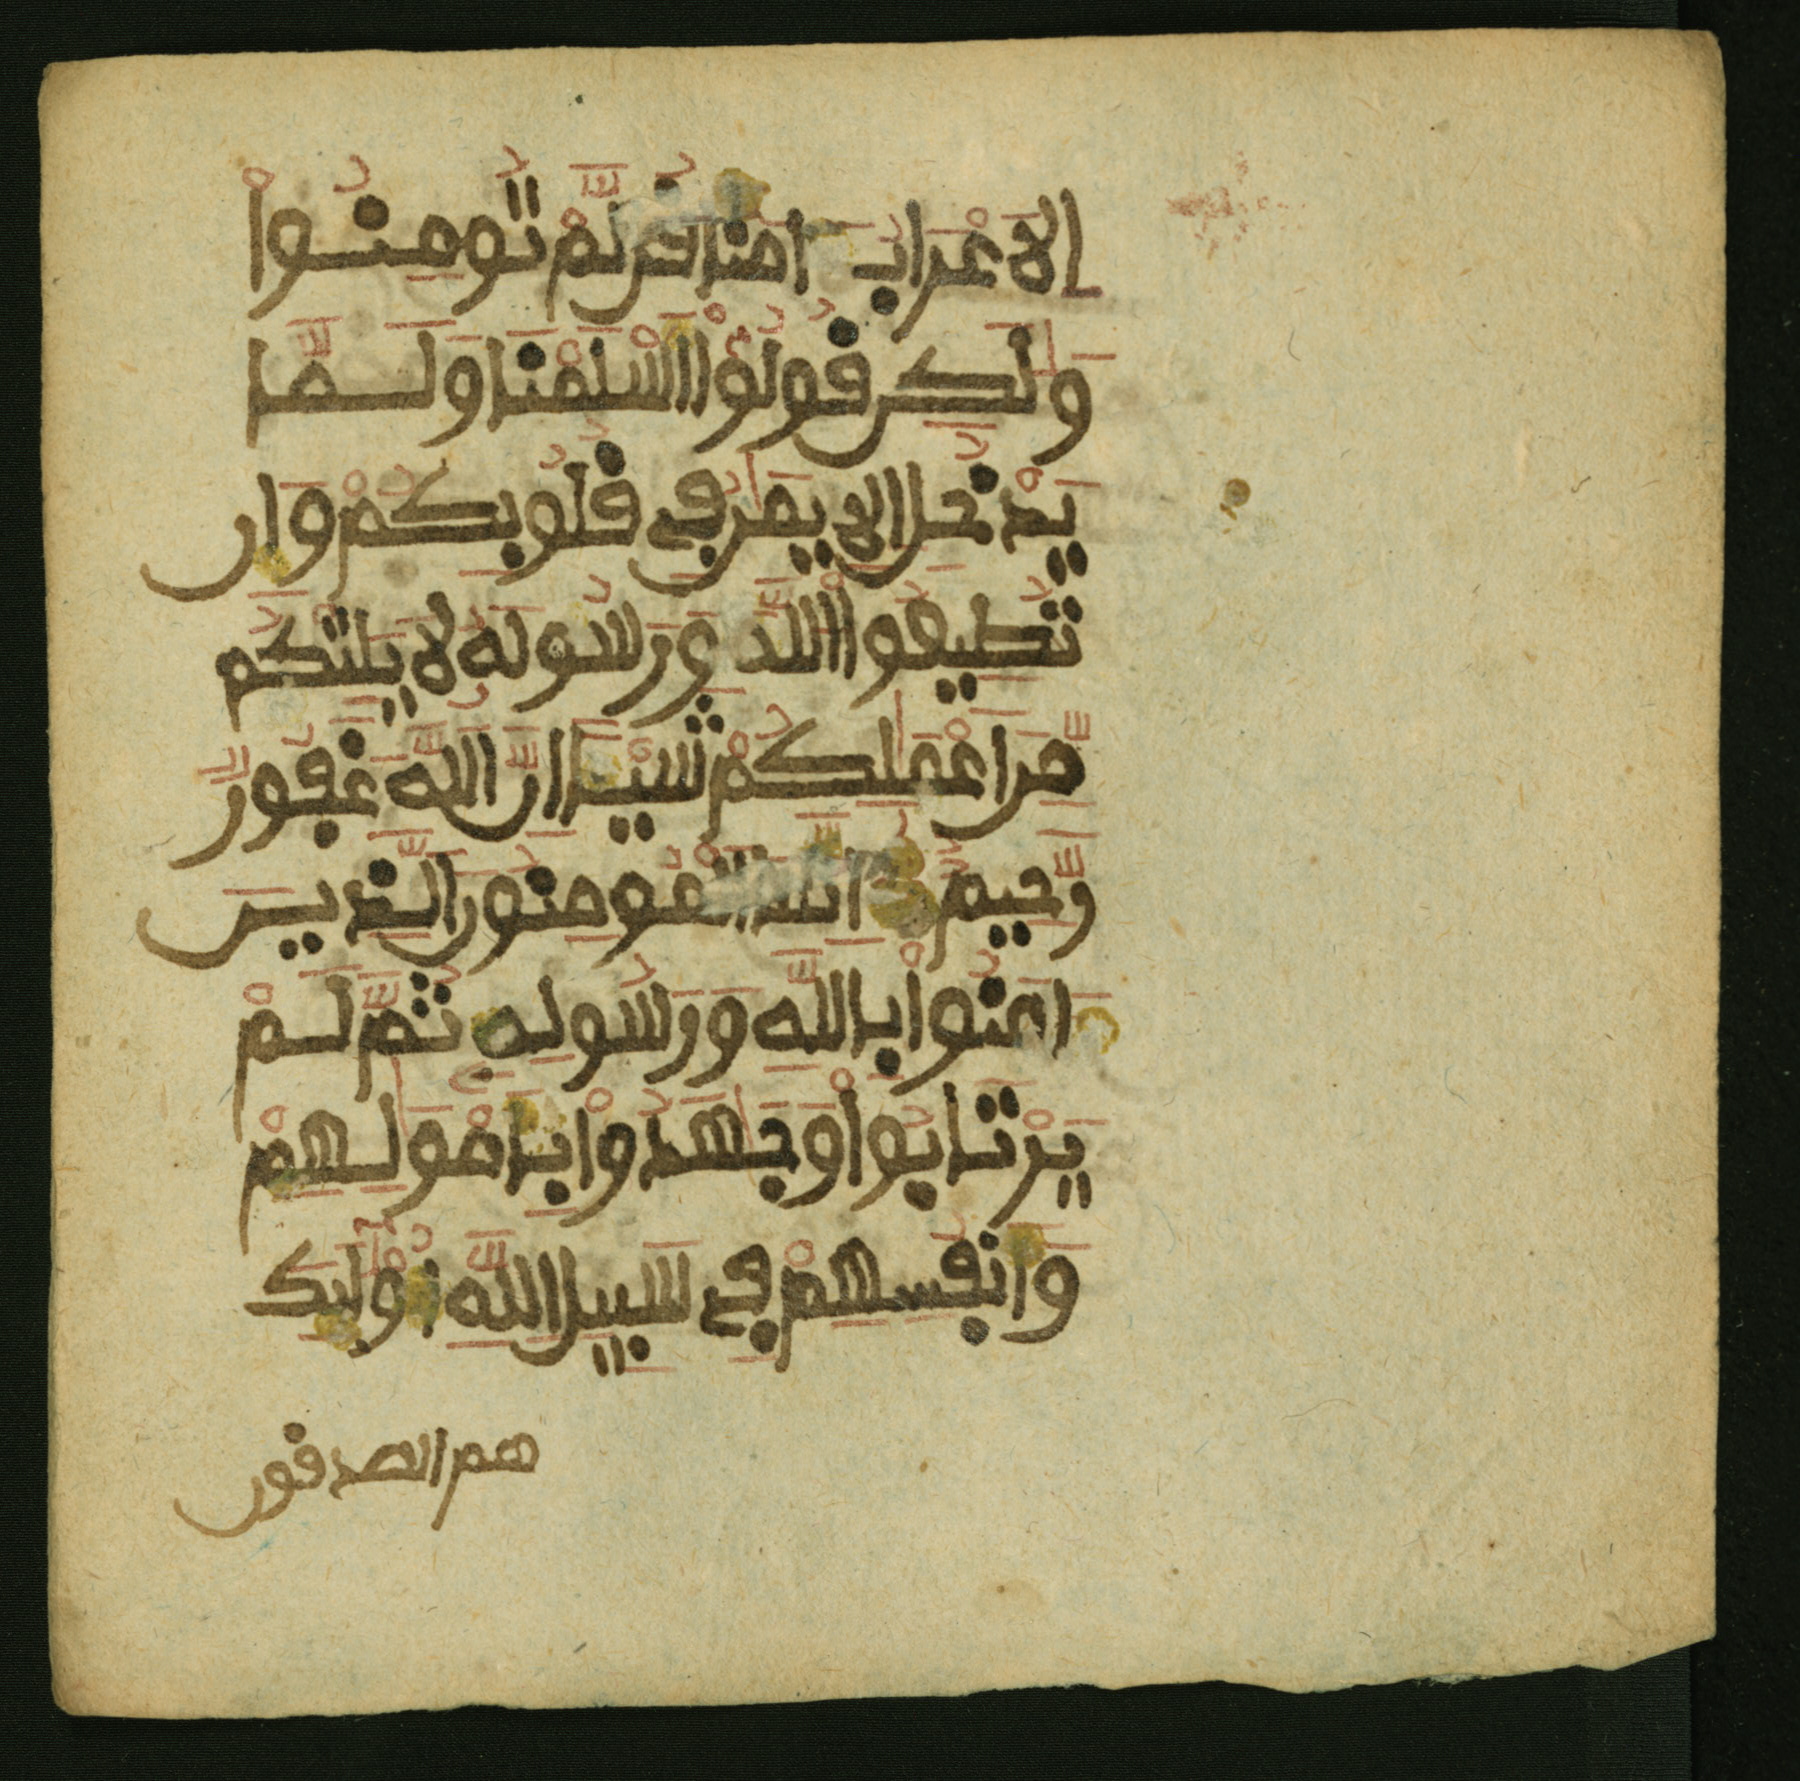 الاعراب امنا قل لم تومنوا
ولكن قولوا اسلمنا ولما
يدخل الايمن في قلوبكم وان
تطيعوا الله ورسوله لا يلتكم
من اعملكم شيا ان الله غفور
رحيم انما المومنون الذين
امنوا بالله ورسوله ثم لم
يرتابوا وجهدوا بامولهم
وانفسهم في سبيل الله اوليك
هم الصدقون